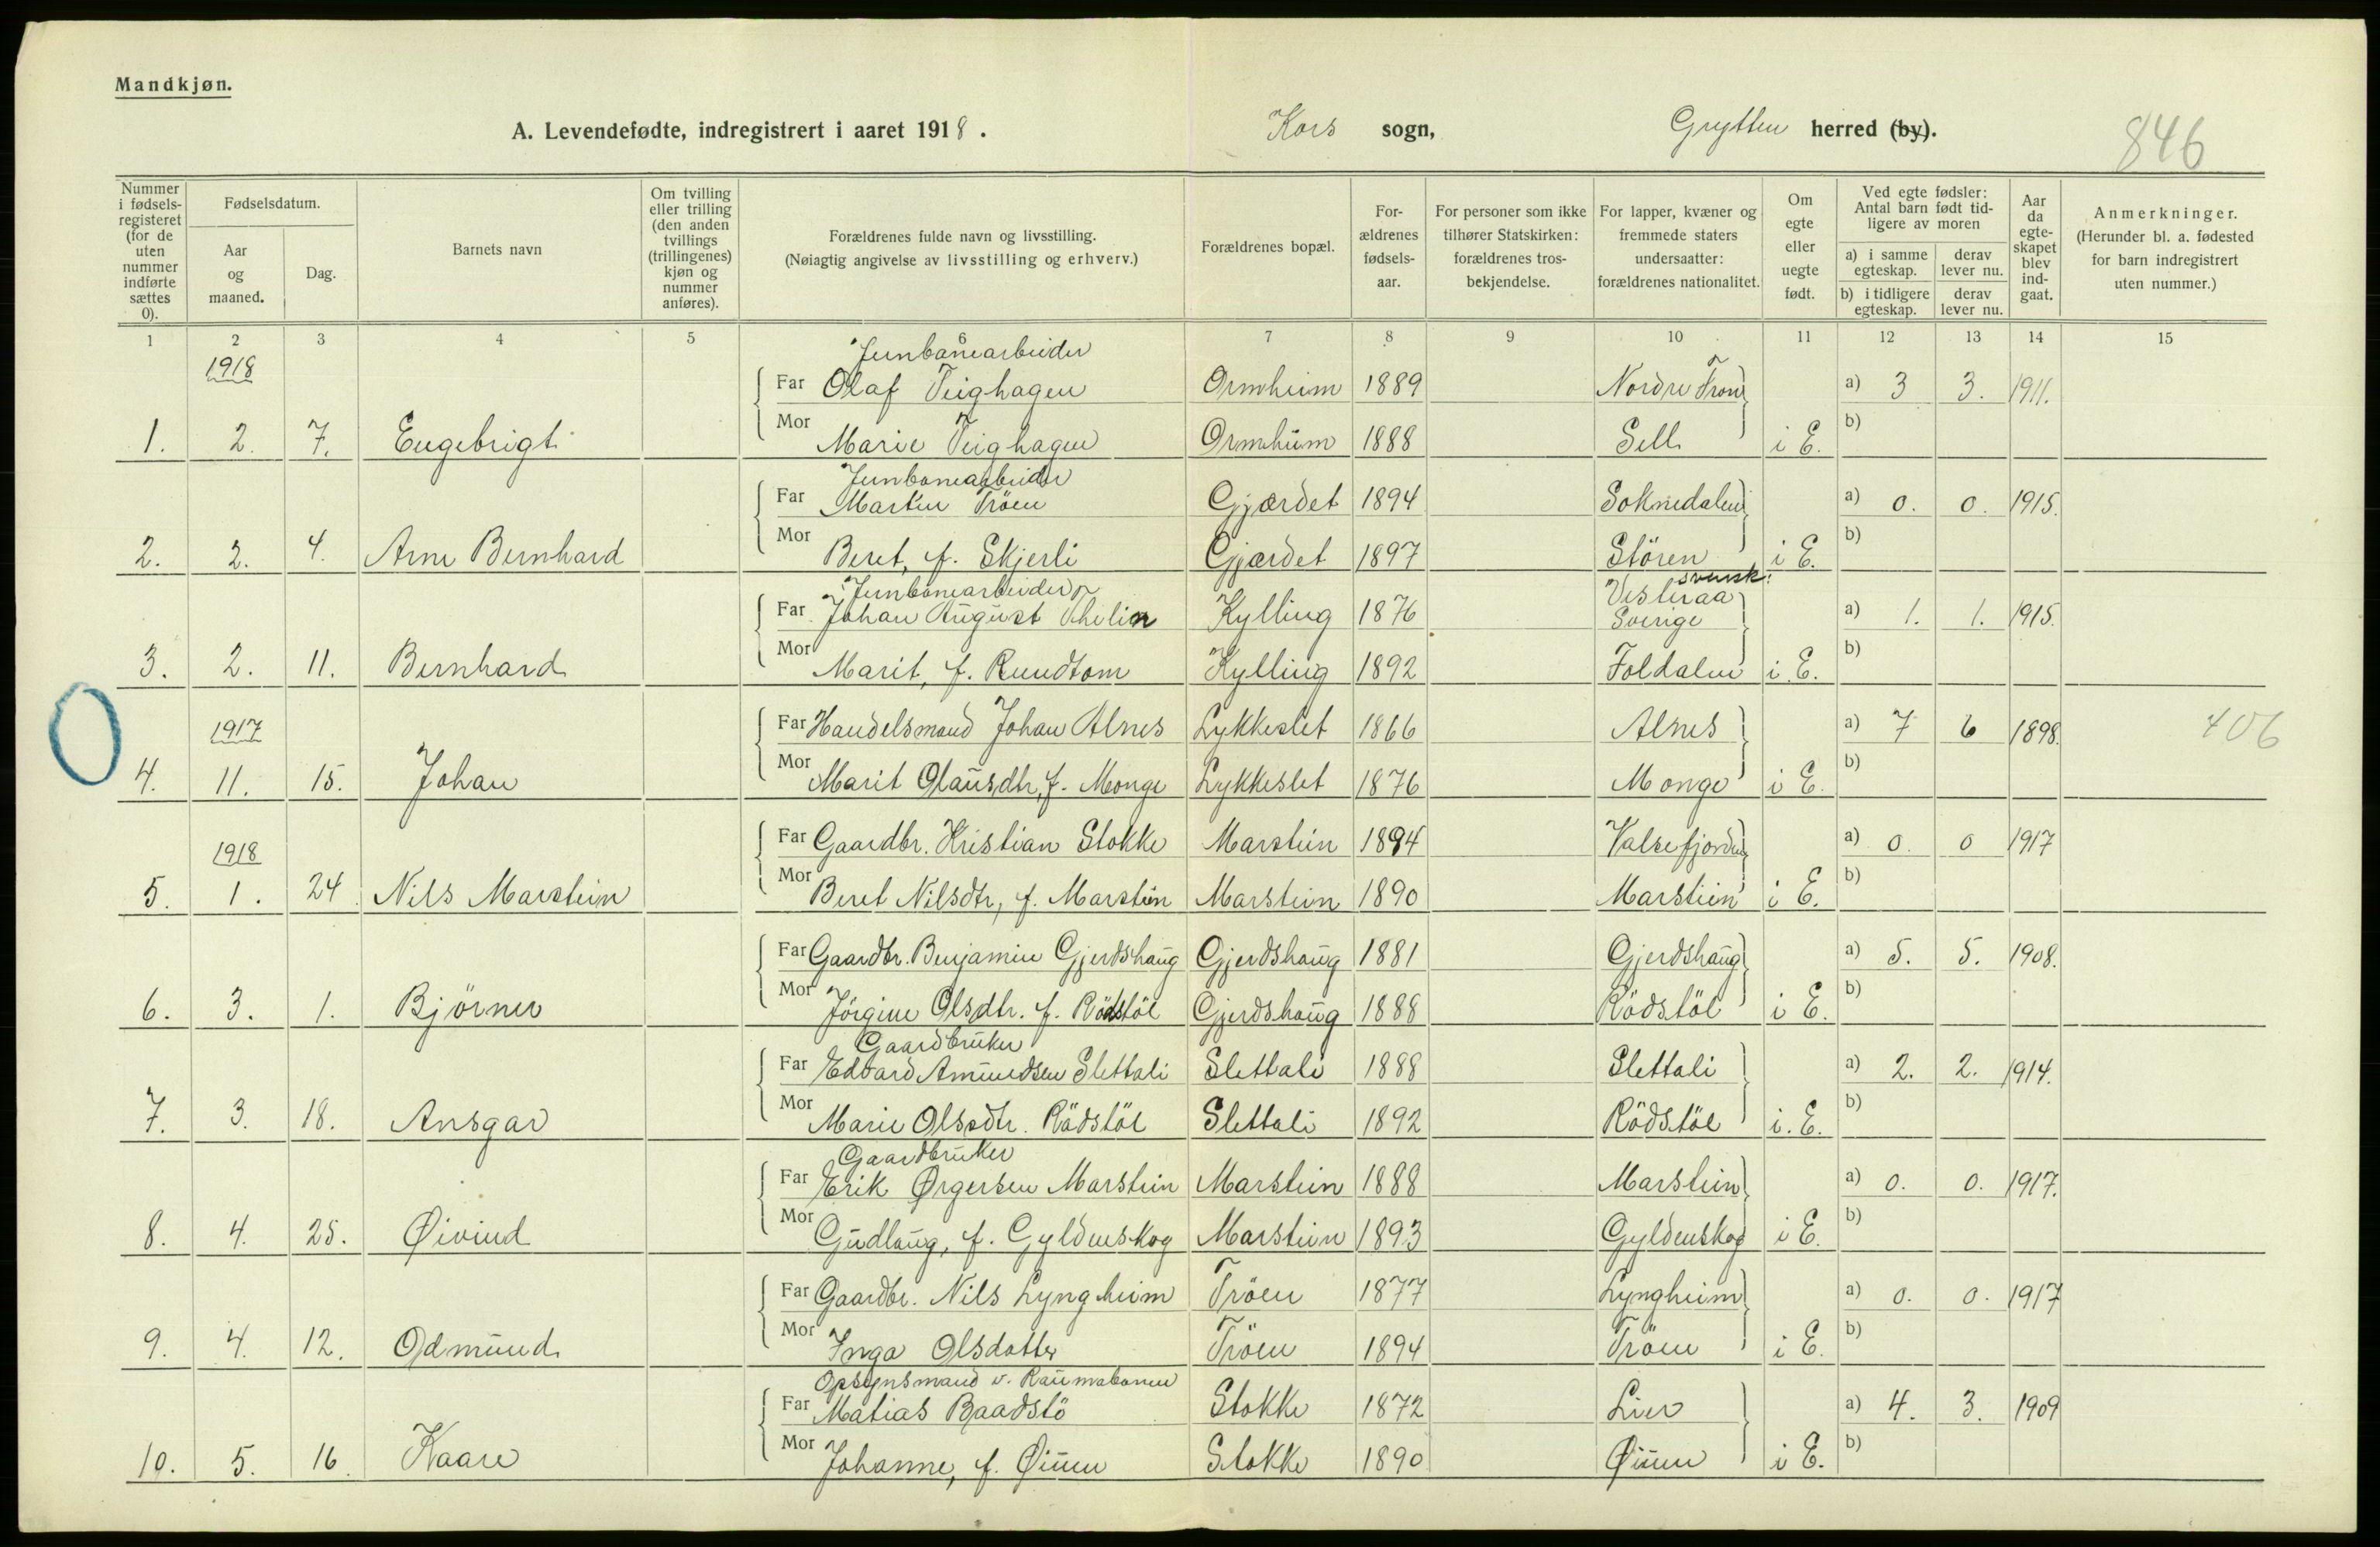 Mandkjøn.
A. Levendefødte, indregistrert i aaret 1918. Kors sogn, Grytten herred (by).
846
Nummer i fødselsregisteret (for de uten nummer indførte sættes 0).
Fødselsdatum.
Aar og maaned.
Dag.
Barnets navn
Om tvilling eller trilling (den anden tvillings (trillingenes) kjøn og nummer anføres).
Forældrenes fulde navn og livsstilling.
(Nøiagtig angivelse av livsstilling og erhverv.)
Forældrenes bopæl.
Forældrenes fødselsaar.
For personer som ikke tilhører Statskirken: forældrenes trosbekjendelse.
For lapper, kvæner og fremmede staters undersaatter: forældrenes nationalitet.
Om egte eller uegte født.
Ved egte fødsler: Antal barn født tidligere av moren
a) i samme egteskap.
derav lever nu.
b) i tidligere egteskap.
derav lever nu.
Aar da egteskapet blev indgaat.
Anmerkninger.
(Herunder bl. a. fødested for barn indregistrert uten nummer.)
1 2 3 4 5 6 7 8 9 10 11 12 13 14 15
1918
Jernbanearbeider
Far Olaf Teighagen Ormheim 1889 Nordre Fron a) 3 3. 1911.
1. 2. 7. Engebrigt Mor Marie Teighagen Ormheim 1888 Sell i E. b)
Jernbanearbeider
Far Martin Tröen Gjærdet 1894 Soknedalen a) 0. 0. 1915.
2. 2. 4. Arne Bernhard Mor Beret, f. Skjerli Gjærdet 1897 Stören i E. b)
Jernbanearbeider svensk.
Far Johan August Thelin Kylling 1876 Vesteraa Sverige a) 1. 1. 1915.
3. 2. 11. Bernhard Mor Marit, f. Ruudtom Kylling 1892 Foldalen i E. b)
1917
Far Handelsmand Johan Alnes Lykkeslet 1866 Alnes a) 7 6 1898. 406
4. 11. 15. Johan Mor Marit Olausdtr, f. Monge Lykkeslet 1876 Monge i E. b)
1918
Far Gaardbr. Kristian Stokke Marstein 1894 Valsefjorden a) 0. 0 1917
5. 1. 24 Nils Marstein Mor Beret Nilsdtr, f. Marstein Marstein 1890 Marstein i E. b)
Far Gaardbr. Benjamin Gjerdshaug Gjerdshaug 1881 Gjerdshaug a) 5. 5. 1908.
6. 3. 1. Björner Mor Jörgine Olsdtr. f. Rödstöl Gjerdshaug 1888 Rödstöl i E. b)
Gaardbruker
Far Edvard Amundsen Slettali Slettali 1888 Slettali a) 2. 2. 1914.
7. 3. 18. Ansgar Mor Marie Olsdtr. Rödstöl Slettali 1892 Rödstöl i. E. b)
Gaardbruker
Far Erik Ørgersen Marstein Marstein 1888 Marstein a) 0. 0. 1917.
8. 4. 25. Øivind Mor Gudlaug, f. Gyldenskog Marstein 1893 Gyldenskog i E. b)
Far Gaardbr. Nils Lyngheim Tröen 1877 Lyngheim a) 0. 0. 1917
9. 4. 12. Odmund Mor Inga Olsdatter Tröen 1894 Tröen i E. b)
Opsynsmand v. Raumabanen
Far Matias Baadstö Stokke 1872 Lier a) 4. 3. 1909
10. 5. 16. Kaare Mor Johanne, f. Øinen Stokke 1890 Øinen i E. b)